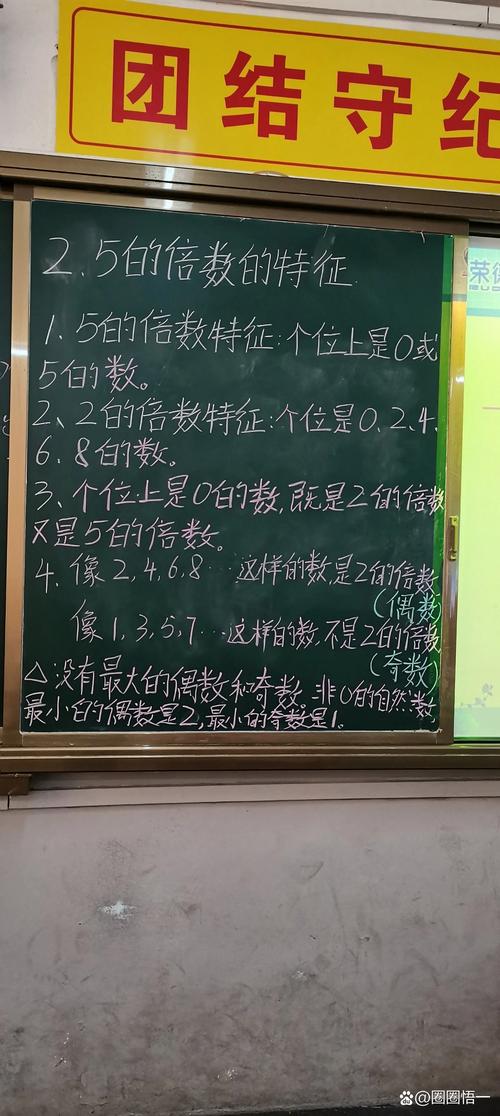 团结守纪
2.5的倍数的特征
1.5的倍数特征:个位上是0或
5的数。
2、2的倍数特征:个位是0.2.4.
6.8的数。
3、个位上是0的数,既是2的倍数
又是5的倍数。
4.像2,4,6,8…这样的数,是2的倍数
(偶数)
像1,3,5,7…这样的数,不是2的倍数
(奇数)
△没有最大的偶数和奇数,非0的自然数
最小的偶数是2,最小的奇数是1。
荣德
@圈圈悟一